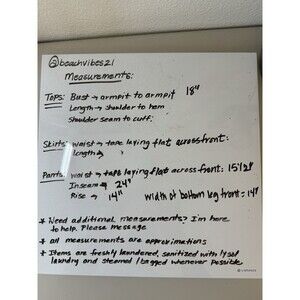 @beachvibes21
Measurements:
Tops: Bust → armpit to armpit 18"
Length → shoulder to hem
Shoulder seam to cuff:
Skirts: waist → tape laying flat across front:
length →
Pants: waist → tape laying flat across front: 15 1/2"
Inseam → 24"
Rise → 14" width of bottom leg front = 14"
* Need additional measurements? I'm here
to help. Please message
* all measurements are approximations
* Items are freshly laundered, sanitized with lysol
laundry and steamed / bagged whenever possible